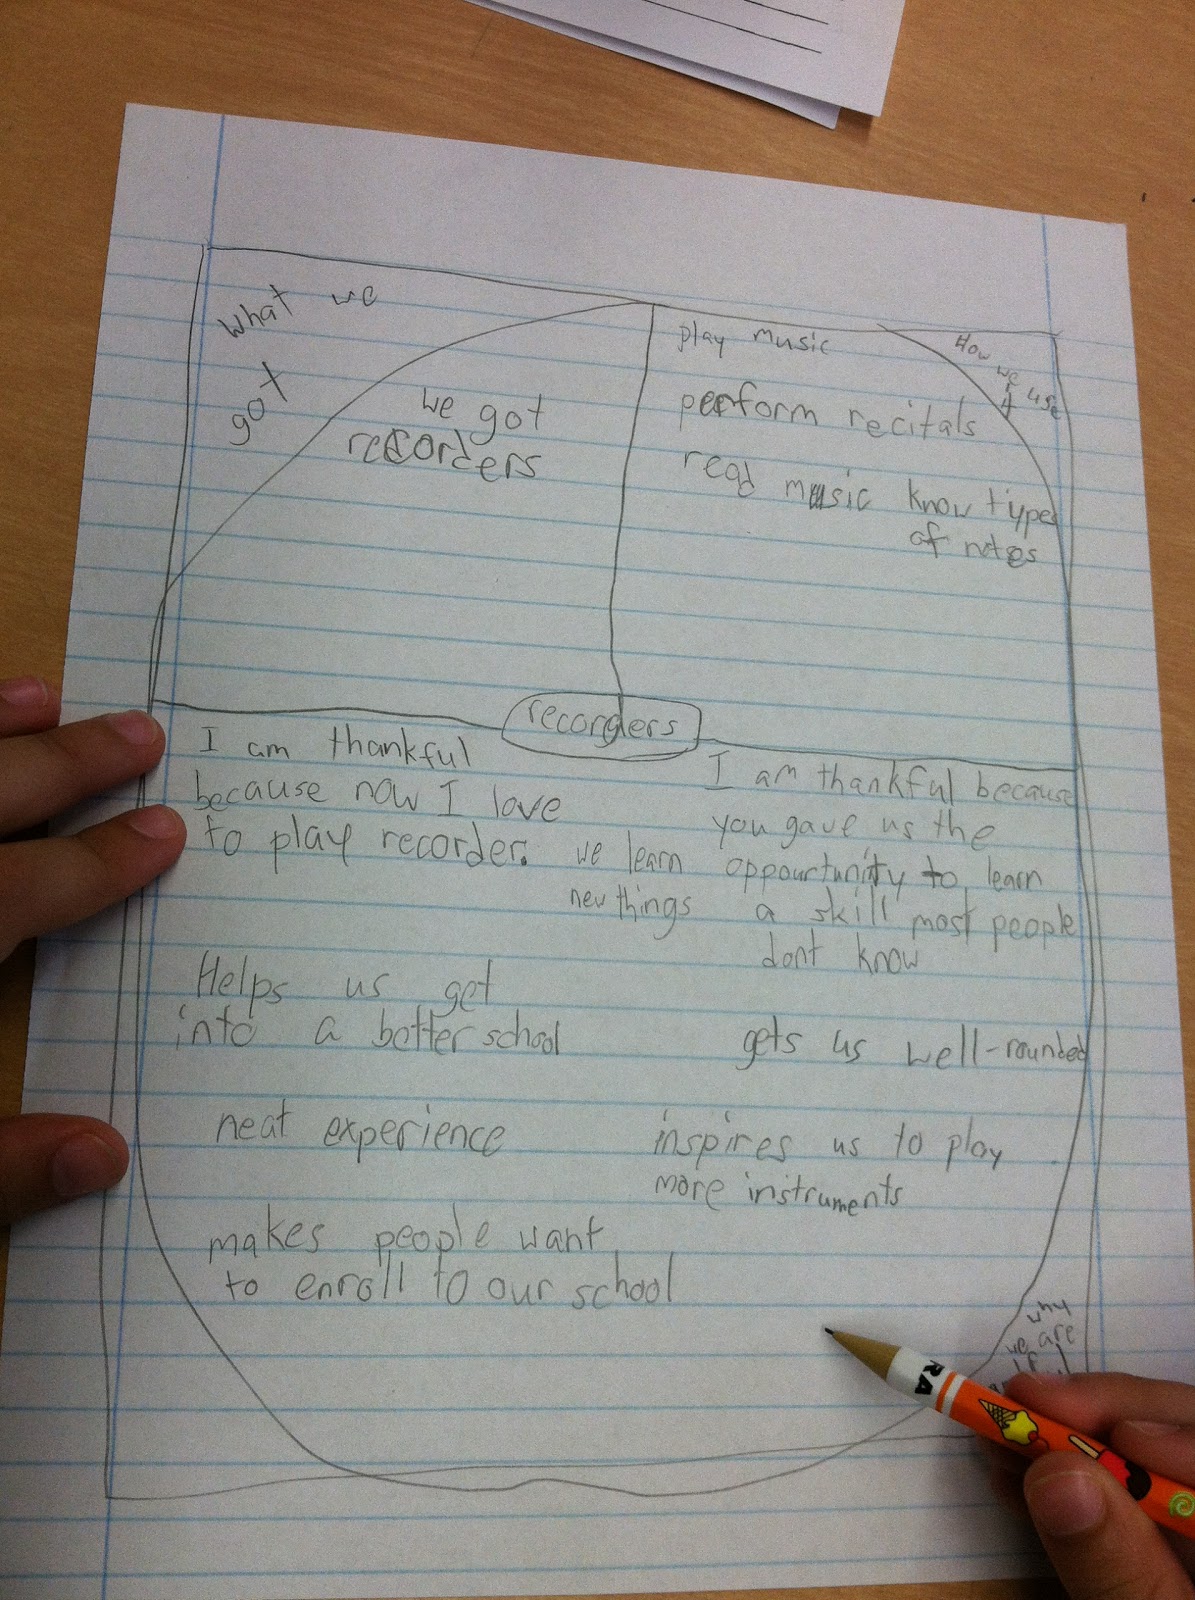 what we
got
we got
recorders
play music
perform recitals
read music know types
of notes
How
we use
it
recorders
I am thankful
because now I love
to play recorder.
we learn
new things
I am thankful because
you gave us the
oppourtunity to learn
a skill most people
dont know
Helps us get
into a better school
gets us well-rounded
neat experience
inspires us to play
more instruments
makes people want
to enroll to our school
why
we are
RA